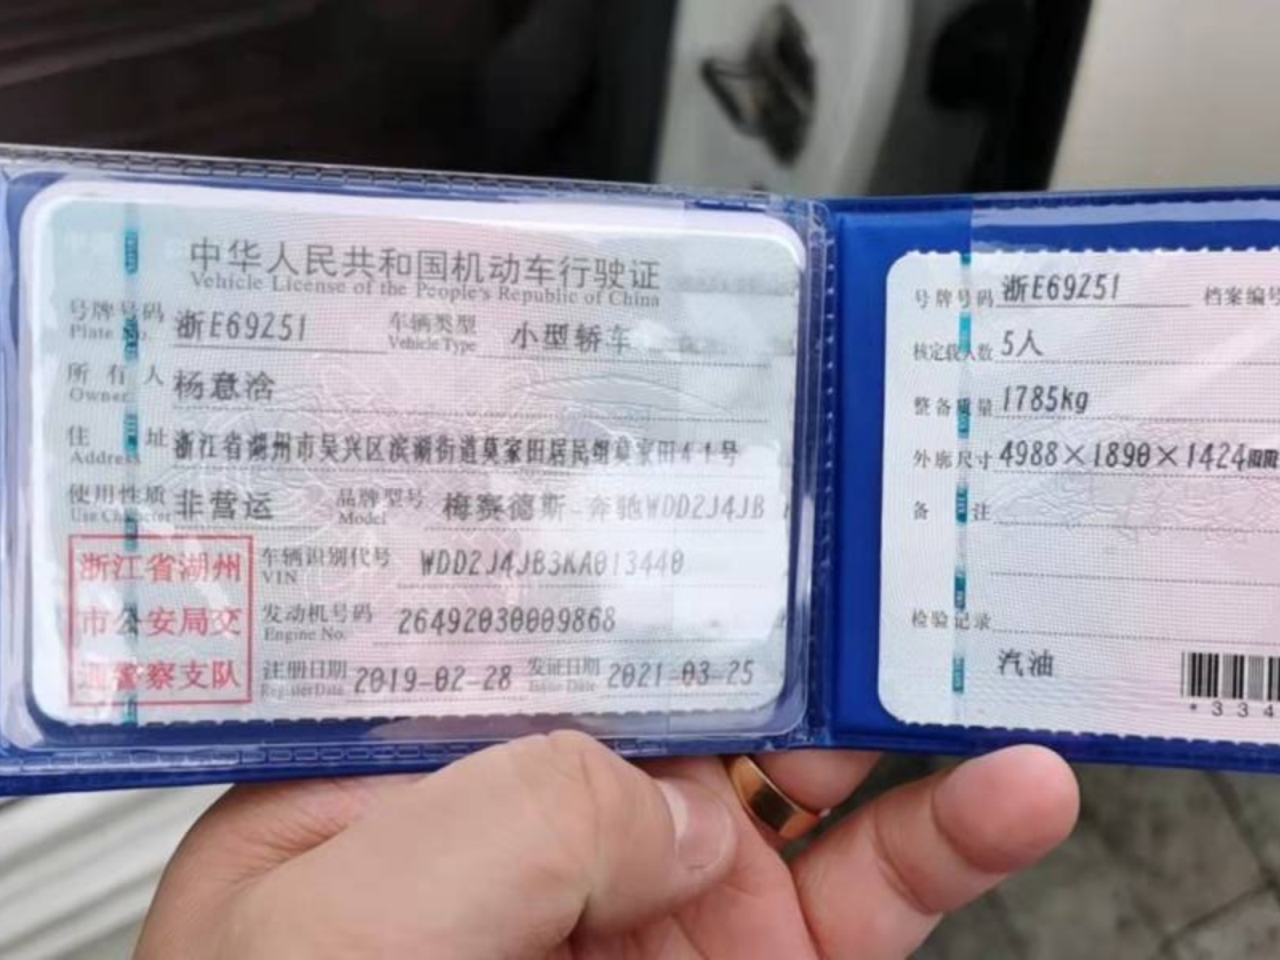 中华人民共和国机动车行驶证
Vehicle License of the People's Republic of China
号牌号码 浙E69Z51 车辆类型 小型轿车
Plate No. Vehicle Type
所有人 杨意浛
Owner
住址 浙江省湖州市吴兴区滨湖街道莫家田居民组莫家田41号
Address
使用性质 非营运 品牌型号 梅赛德斯-奔驰WDD2J4JB
Use Character Model
浙江省湖州
市公安局交
通警察支队
车辆识别代号 WDD2J4JB3KA013440
VIN
发动机号码 26492030009868
Engine No.
注册日期 2019-02-28 发证日期 2021-03-25
Register Date Issue Date
号牌号码 浙E69Z51 档案编号
核定载人数 5人
整备质量 1785kg
外廓尺寸 4988×1890×1424mm
备注
检验记录
汽油
*334